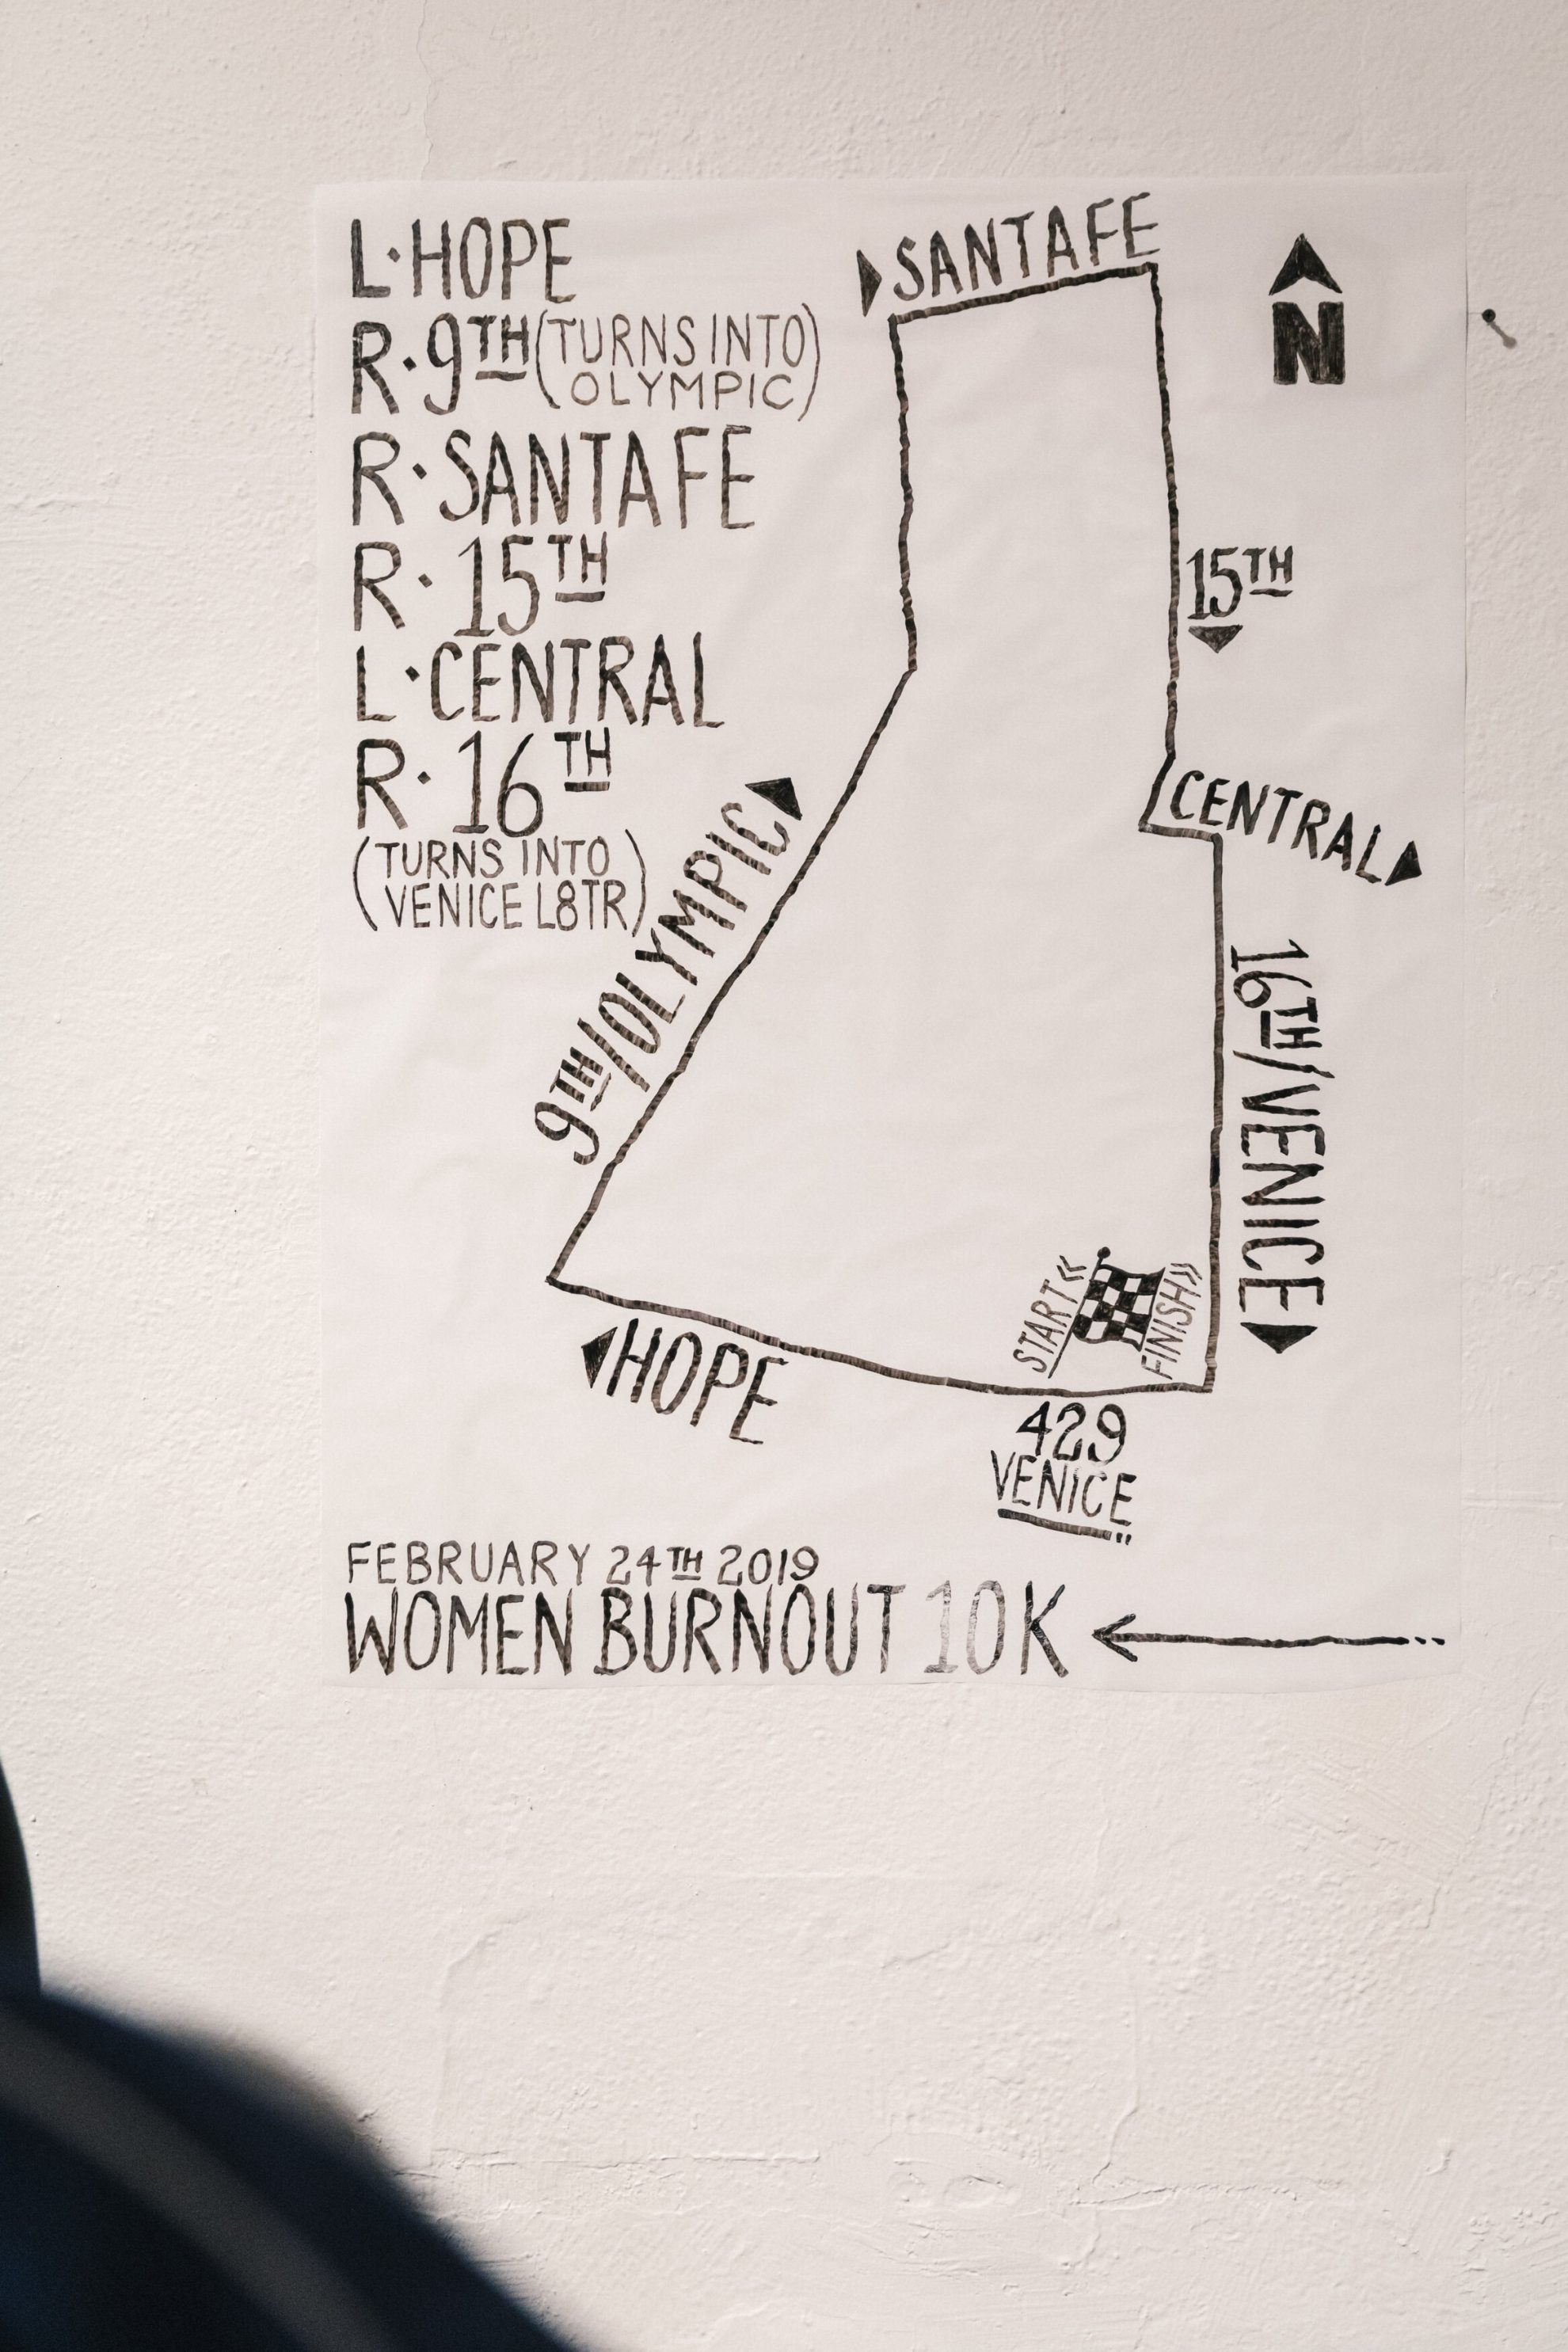 L·HOPE
R·9TH (TURNS INTO
OLYMPIC)
R·SANTAFE
R·15TH
L·CENTRAL
R·16TH
(TURNS INTO
VENICE L8TR)
SANTAFE
N
15TH
CENTRAL
9TH/OLYMPIC
16TH/VENICE
START«
FINISH»
HOPE
429
VENICE
FEBRUARY 24TH 2019
WOMEN BURNOUT 10K